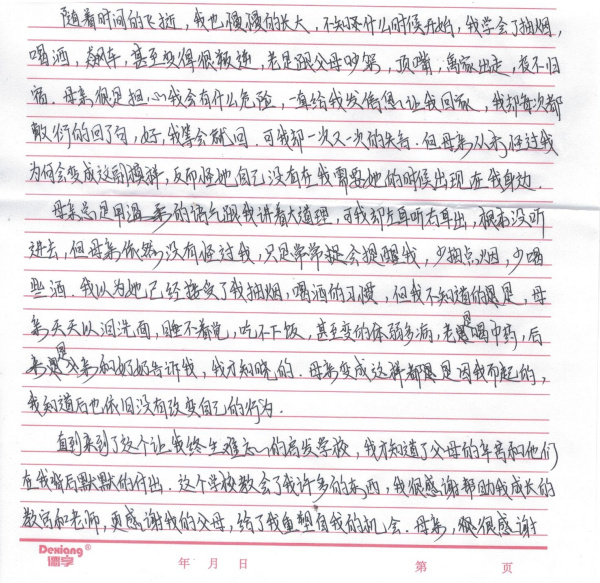 随着时间的飞逝，我也慢慢的长大，不知从什么时候开始，我学会了抽烟，
喝酒，飙车，甚至变得很叛逆，老是跟父母吵架，顶嘴，离家出走，夜不归
宿．母亲很是担心我会有什么危险，一直给我发信息让我回家，我却每次都
敷衍的回了句，好，我等会就回．可我却一次又一次的失言．但母亲从未怪过我
为何会变成这副模样，反而怪她自己没有在我需要她的时候出现在我身边．
母亲总是用温柔的语气跟我讲着大道理，可我却左耳听右耳出，根本没听
进去，但母亲依然没有怪过我，只是常常提会提醒我，少抽点烟，少喝
些酒．我以为她已经接受了我抽烟，喝酒的习惯，但我不知道的是，母
亲天天以泪洗面，睡不着觉，吃不下饭，甚至变的体弱多病，老是喝中药，后
来是父亲和奶奶告诉我，我才知晓的．母亲变成这样都是因我而起的，
我知道后也依旧没有改变自己的行为．
直到来到了这个让我终生难忘的学校，我才知道了父母的辛苦和他们
在我背后默默的付出．这个学校教会了我许多的东西，我很感谢帮助我成长的
教官和老师，更感谢我的父母，给了我重塑自我的机会．母亲，很很感谢
Dexiang®
德字
年 月 日 第 页